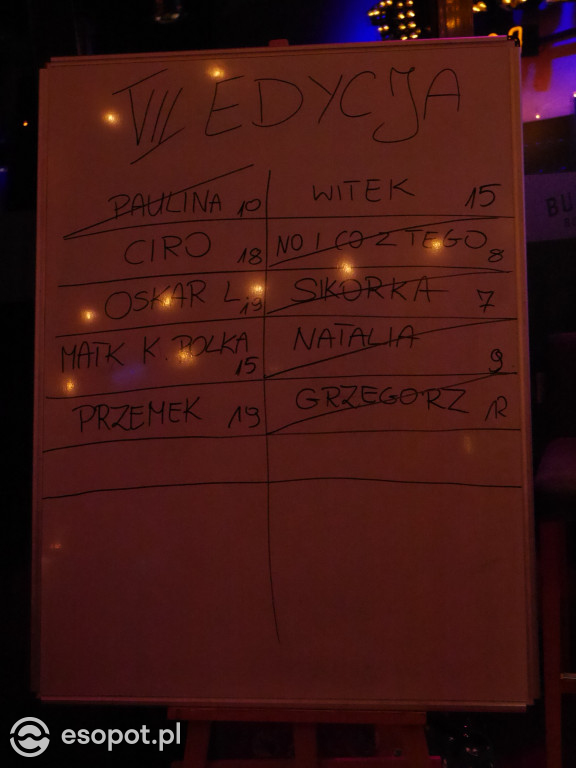 VII EDYCJA
PAULINA 10
WITEK 15
CIRO 18
NO I CO Z TEGO 8
OSKAR L. 19
SIKORKA 7
MATK K. POLKA 15
NATALIA 9
PRZEMEK 19
GRZEGORZ 12
BU
esopot.pl